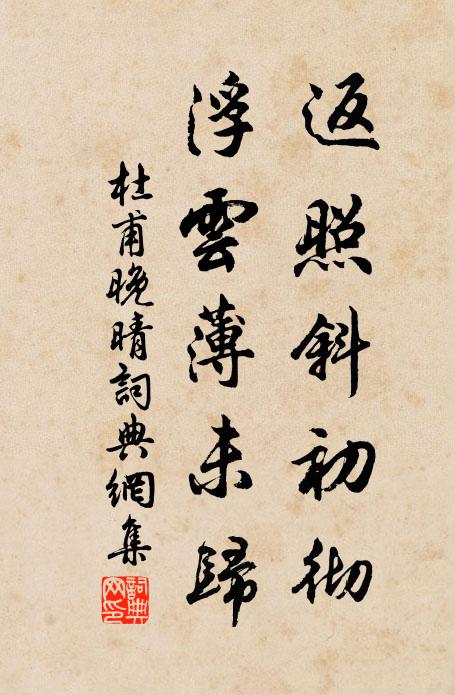 返照斜初彻
浮雲薄未歸
杜甫晚晴詞典網集
詞典
网印